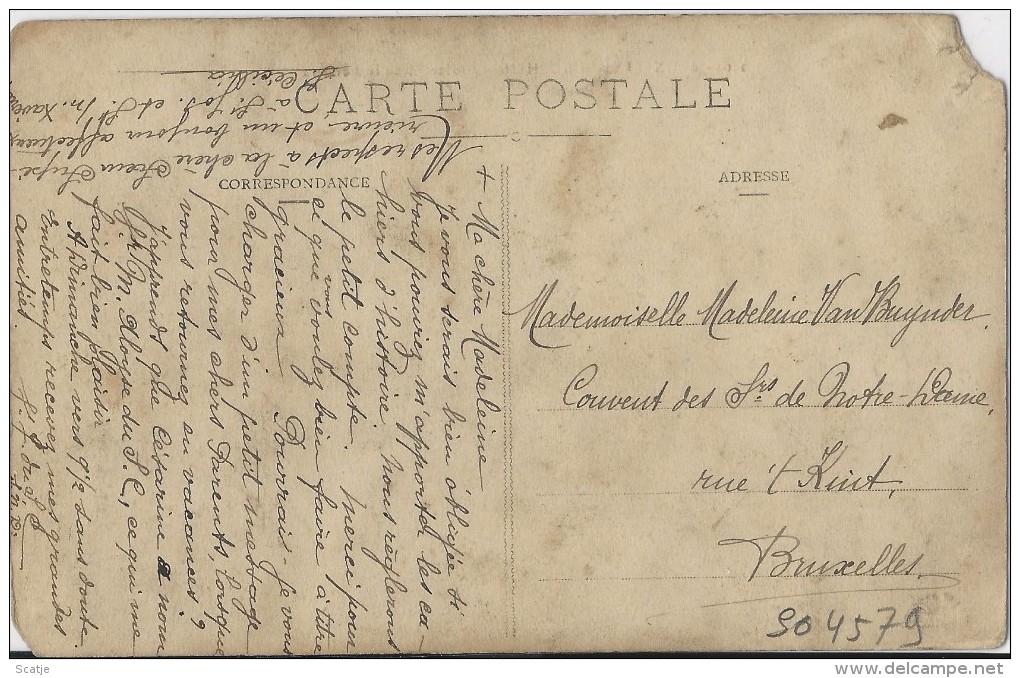 CARTE POSTALE
CORRESPONDANCE
ADRESSE
+ Ma chère Madeleine
Je vous serais bien obligée si
vous pouviez m'apporter les ca-
hiers d'histoire. Nous réglerons
le petit compte. Merci pour
ce que vous voulez bien faire à titre
gracieux. Pourrais-je vous
charger d'un petit message
pour mes chers Parents, lorsque
vous retournez en vacances?
J'apprends que Césarine a nom
Sr M. Aloyse du S. C., ce qui me
fait bien plaisir.
A Dimanche vers 9 1/2 sans doute.
Entretemps recevez mes grandes
amitiés.
Mes respects à la chère Soeur Supé-
rieure et un bonjour affectueux
à Sr Jos. et Sr M. Xavier
S. Cécilia
Mademoiselle Madeleine Van Buynder.
Couvent des Srs de Notre-Dame,
rue 't Kint,
Bruxelles.
904579
Scatje
delcampe.net